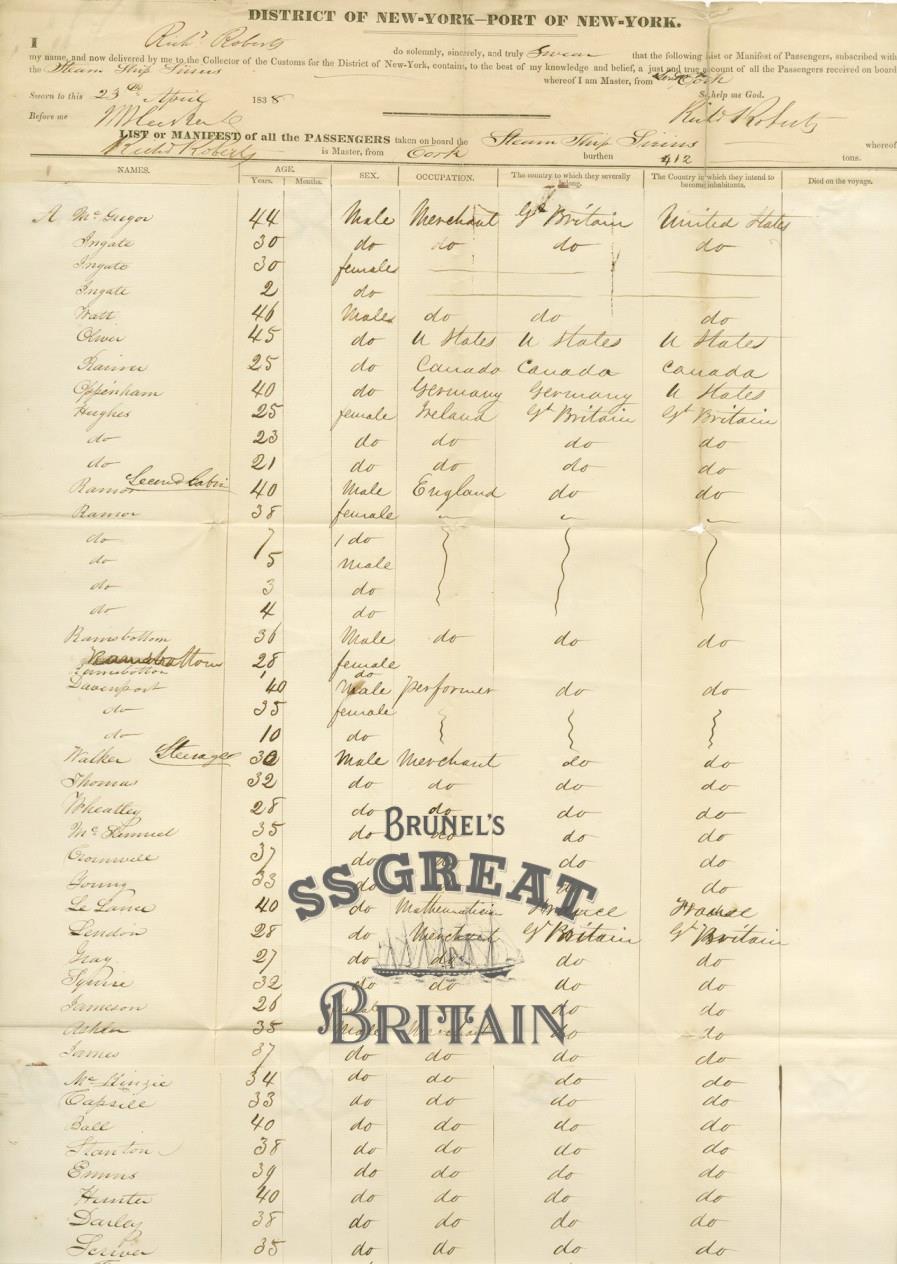 DISTRICT OF NEW-YORK—PORT OF NEW-YORK.
I Richd Roberts do solemnly, sincerely, and truly Swear that the following List or Manifest of Passengers, subscribed with
my name, and now delivered by me to the Collector of the Customs for the District of New-York, contains, to the best of my knowledge and belief, a just and true account of all the Passengers received on board
the Steam Ship Sirius whereof I am Master, from Cork
Sworn to this 23d April 1838 So help me God.
Before me Richd Roberts
LIST or MANIFEST of all the PASSENGERS taken on board the Steam Ship Sirius whereof
Richd Roberts is Master, from Cork burthen 412 tons.
NAMES. AGE. SEX. OCCUPATION. The country to which they severally belong. The Country in which they intend to become inhabitants. Died on the voyage.
Years. Months.
A McGregor 44 Male Merchant Gt Britain United States
Ingate 30 do do do do
Ingate 30 females
Ingate 2 do
Watt 46 Males do do do
Oliver 45 do U States U States U States
25 do Canada Canada Canada
Oppenham 40 do Germany Germany U States
Hughes 25 female Ireland Gt Britain Gt Britain
do 23 do do do do
do 21 do do do do
Second Cabin
Ramor 40 Male England do do
Ramor 38 female
do 7 do
do 5 Male
do 3 do
do 4 do
Ramsbottom 36 Male do do do
Ramsbottom 28 female
Ramsbottom 1 do
Davenport 40 Male performer do do
do 35 female
do 10 do
Steerage
Walker 30 Male Merchant do do
Thomas 32 do do do do
Wheatley 28 do do do do
35 do do do do
Cromwell 37 do do do do
Young 33 do do do
40 do Mathematician France France
Lendon 28 do Merchant Gt Britain Gt Britain
Gray 27 do do do do
Squire 32 do do do do
Jameson 26 female do do
35 Male Merchant do do
James 37 do do do do
McKinzie 34 do do do do
Capsill 33 do do do do
Ball 40 do do do do
Stanton 38 do do do do
Emms 39 do do do do
Hunter 40 do do do do
Darley 38 do do do do
Scriver 35 do do do do
BRUNEL'S
SS GREAT
BRITAIN